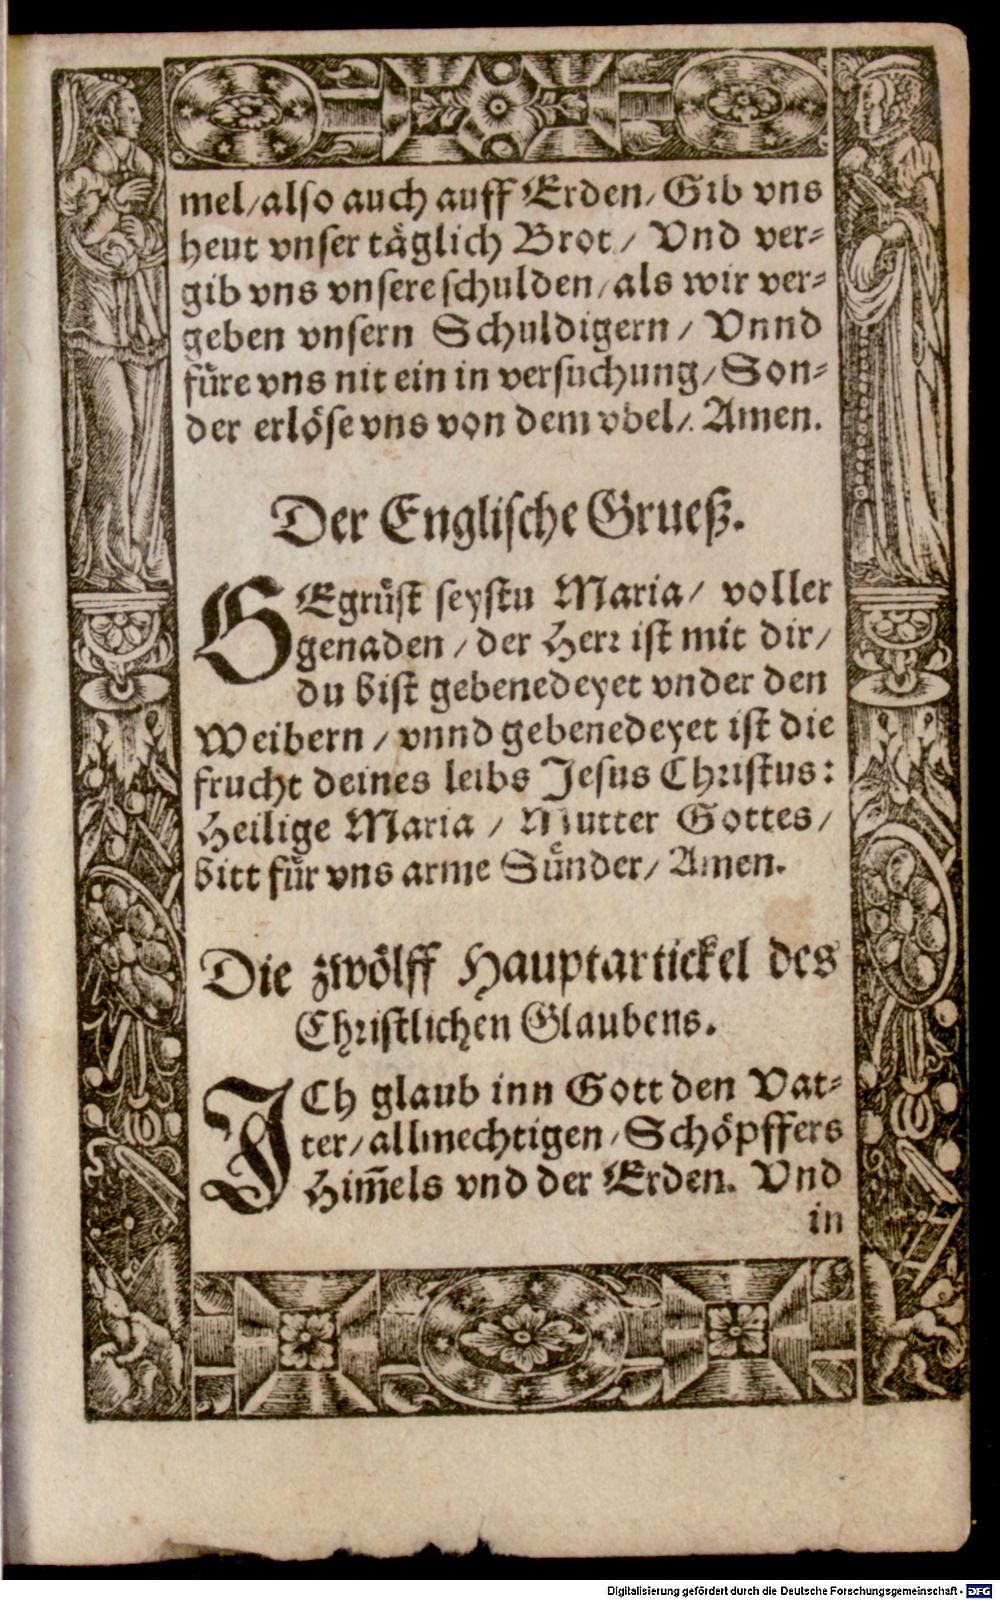 mel/also auch auff Erden/ Gib vns
heut vnser täglich Brot/ Vnd ver-
gib vns vnsere schulden/als wir ver-
geben vnsern Schuldigern/ Vnnd
fuͤre vns nit ein in versuchung/Son-
der erlöse vns von dem vbel/. Amen.
Der Englische Grueß.
GEgruͤst seystu Maria/ voller
genaden/der Herr ist mit dir/
du bist gebenedeyet vnder den
Weibern/vnnd gebenedeyet ist die
frucht deines leibs Jesus Christus:
Heilige Maria/ Mutter Gottes/
bitt fuͤr vns arme Suͤnder/ Amen.
Die zwoͤlff Hauptartickel des
Christlichen Glaubens.
ICh glaub inn Gott den Vat-
ter/allmechtigen/Schöpffers
Him̄els vnd der Erden. Vnd
in
Digitalisierung gefördert durch die Deutsche Forschungsgemeinschaft - DFG